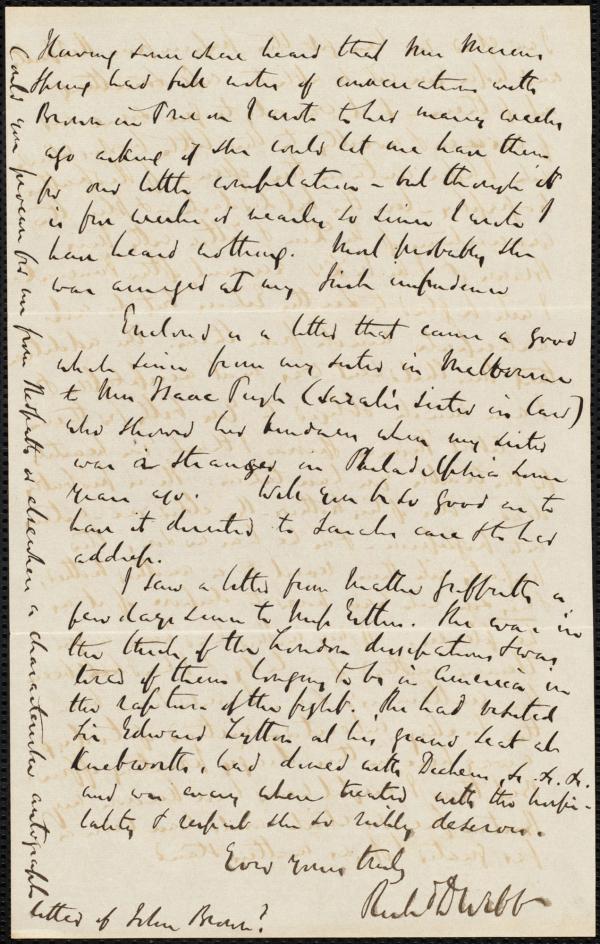 Having somewhere heard that Mrs Marcus
Spring had full notes of conversations with
Brown in Prison I wrote to her many weeks
ago asking if she could let me have them
for our little compilation - but though it
is five weeks or nearly so since I wrote I
have heard nothing. Most probably she
was amazed at my Irish impudence
Enclosed is a letter that came a good
while since from my sister in Melbourne
to Mrs Isaac Pugh (Sarah's sister in law)
who showed her kindness when my sister
was a stranger in Philadelphia some
years ago. Will you be so good as to
have it directed to Sarah's care & to her
address.
I saw a letter from Mattie Griffith a
few days since to Miss Estlin. She was in
the thick of the London dissipations & was
tired of them longing to be in America in
the rapture of the fight. She had visited
Sir Edward Lytton at his grand seat at
Knebworth, had dined with Dickens, &c. &c. &c.
and was every where treated with the hospi-
tality & respect she so richly deserves.
Ever yours truly
Richd D Webb
Could you procure for me from Redpath or elsewhere a characteristic autograph
letter of John Brown?